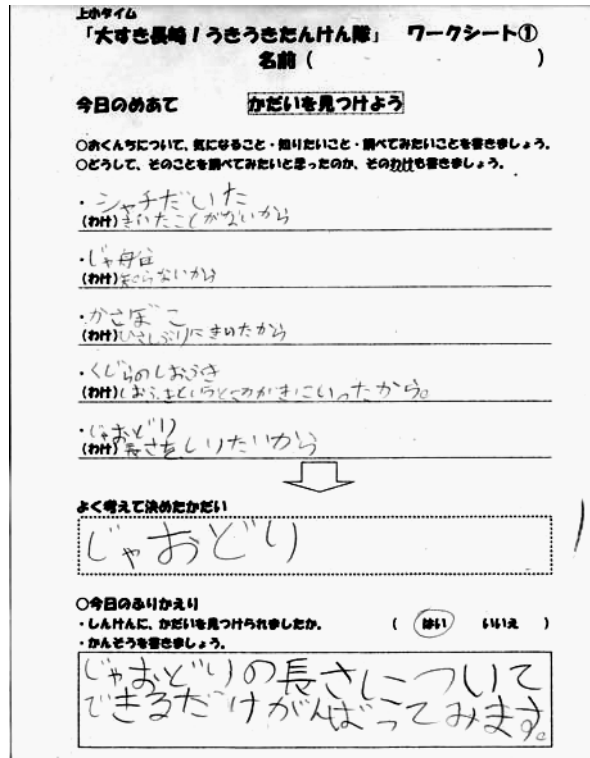 上小タイム
「大すき長崎！うきうきたんけん隊」　ワークシート①
名前（　　　　　　　　　　）
今日のめあて　　かだいを見つけよう
○おくんちについて、気になること・知りたいこと・調べてみたいことを書きましょう。
○どうして、そのことを調べてみたいと思ったのか、そのわけも書きましょう。
・シャチだいた
(わけ)きいたことがないから
・じゃ舟
(わけ)知らないから
・かさぼこ
(わけ)ひさしぶりにきいたから
・くじらのしおふき
(わけ)しおふきというと
にいったから。
・じゃおどり
(わけ)長さをしりたいから
よく考えて決めたかだい
じゃおどり
○今日のふりかえり
・しんけんに、かだいを見つけられましたか。　　（　はい　　いいえ　）
・かんそうを書きましょう。
じゃおどりの長さについて
できるだけがんばってみます。